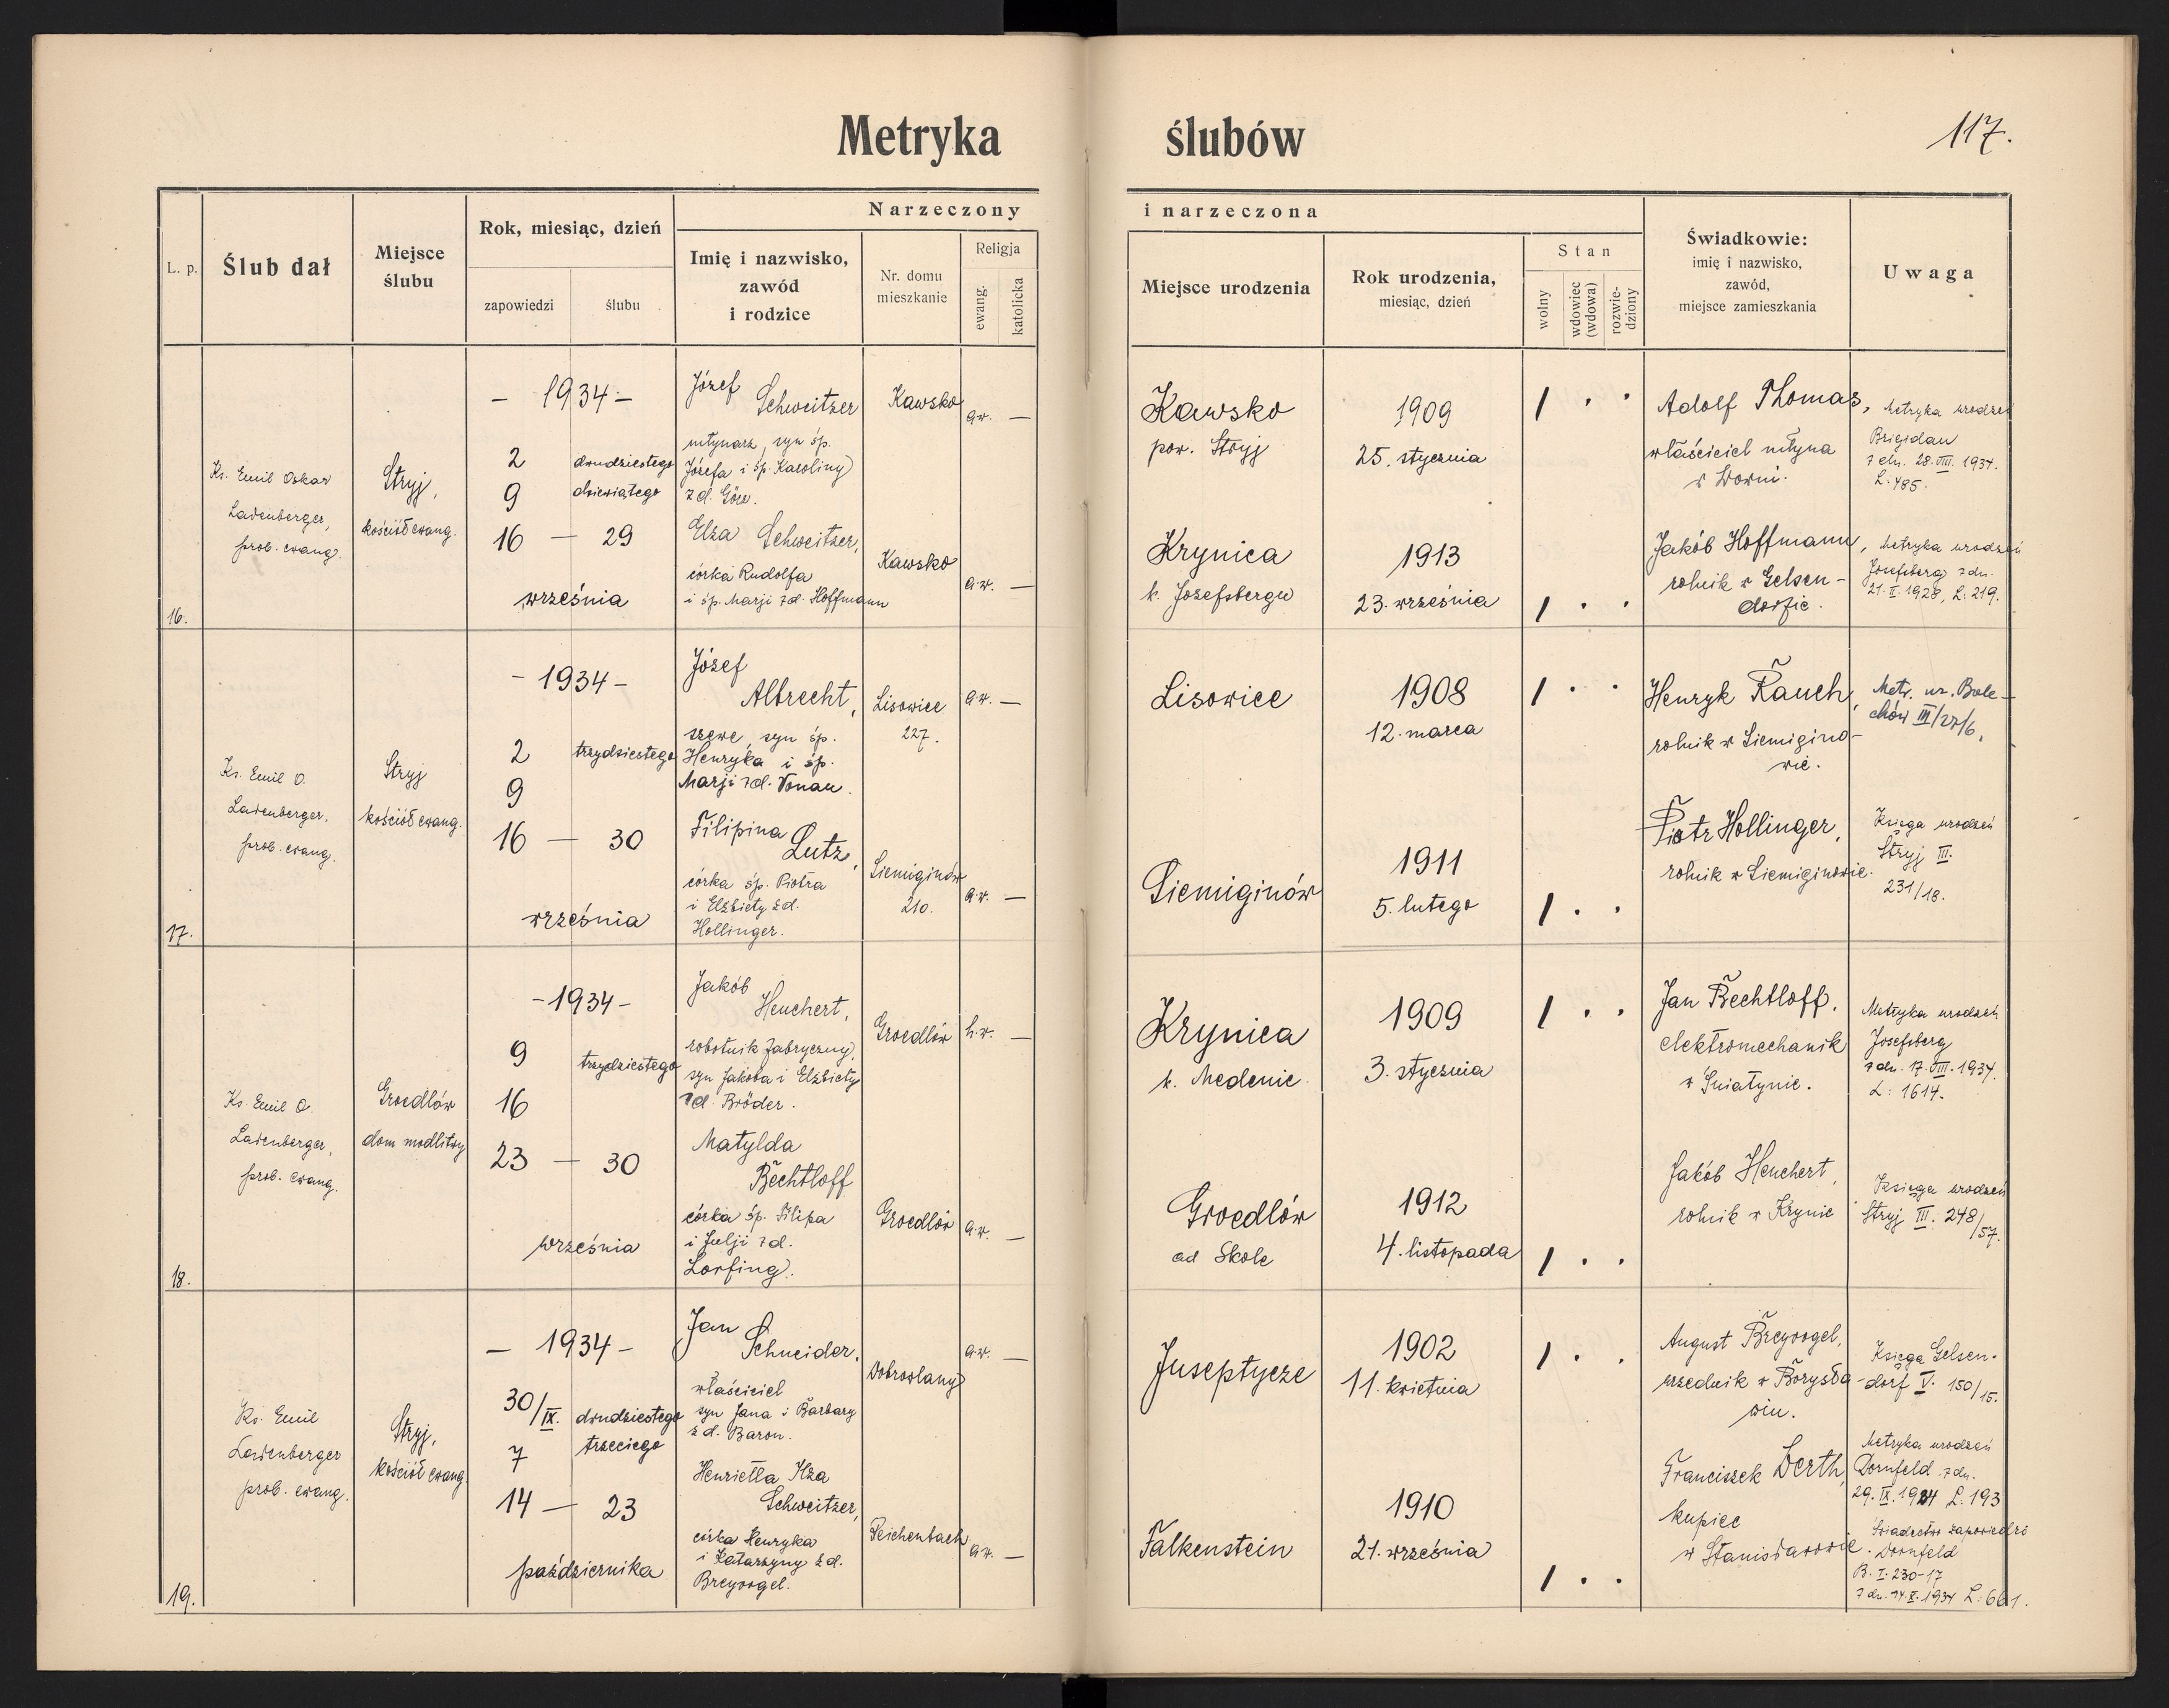 Metryka ślubów
117.
Narzeczony i narzeczona
L. p.
Ślub dał
Miejsce
ślubu
Rok, miesiąc, dzień
zapowiedzi
ślubu
Imię i nazwisko,
zawód
i rodzice
Nr. domu
mieszkanie
Religja
ewang.
katolicka
Miejsce urodzenia
Rok urodzenia,
miesiąc, dzień
Stan
wolny
wdowiec
(wdowa)
rozwie-
dziony
Świadkowie:
imię i nazwisko,
zawód,
miejsce zamieszkania
Uwaga
16.
Ks. Emil Oskar
Ladenberger,
prob. ewang.
Stryj,
kościół ewang.
– 1934 –
2
9
16 — 29
dwudziestego
dziewiątego
września
Józef
Schweitzer
młynarz, syn śp.
Józefa i śp. Karoliny
z d. Göre.
Kawsko
a.w. —
Elza Schweitzer,
córka Rudolfa
i śp. Marji z d. Hoffmann
Kawsko
a.w. —
Kawsko
pow. Stryj
1909
25. stycznia
Krynica
k. Josefsbergu
1913
23. września
Adolf Thomas,
właściciel młyna
w
Jakób Hoffmann,
rolnik w Gelsen-
dorfie.
Metryka urodzeń
Brigidau
z dn. 28. VIII. 1934.
L. 485.
Metryka urodzeń
Josefsberg z dn.
21. II. 1928, L. 219.
17.
Ks. Emil O.
Ladenberger,
prob. ewang.
Stryj
kościół ewang.
– 1934 –
2
9
16 — 30
trzydziestego
września
Józef
Albrecht,
szewc, syn śp.
Henryka i śp.
Marji z d. Vonau.
Lisowice
227.
a.w. —
Filipina
Lutz,
córka śp. Piotra
i Elżbiety z d.
Hollinger.
Siemiginów
210.
a.w. —
Lisowice
1908
12. marca
Siemiginów
1911
5. lutego
Henryk Rauch,
rolnik w Siemigino-
wie.
Piotr Hollinger,
rolnik w Siemiginowie.
Metr. ur. Bole-
chów III/27/6.
Księga urodzeń
Stryj III.
231/18.
18.
Ks. Emil O.
Ladenberger,
prob. ewang.
Groedlów
dom modlitwy
– 1934 –
9
16
23 — 30
trzydziestego
września
Jakób
Heuchert,
robotnik fabryczny,
syn Jakóba i Elżbiety
z d. Bröder.
Groedlów
h.w. —
Matylda
Bechtloff
córka śp. Filipa
i Julji z d.
Lorfing.
Groedlów
a.w. —
Krynica
k. Medenic
1909
3. stycznia
Groedlów
ad Skole
1912
4. listopada
Jan Bechtloff,
elektromechanik
w Śniatynie.
Jakób Heuchert,
rolnik w Krynic
Metryka urodzeń
Josefsberg
z dn. 17. VIII. 1934.
L: 1614.
Księga urodzeń
Stryj III. 248/57.
19.
Ks. Emil
Ladenberger
prob. ewang.
Stryj,
kościół ewang.
– 1934 –
30/IX.
7
14 — 23
dwudziestego
trzeciego
października
Jan
Schneider,
właściciel
syn Jana i Barbary
z d. Baron.
Dobrowlany
a.w. —
Henrietta Ilza
Schweitzer,
córka Henryka
i Katarzyny z d.
Breyvogel.
Reichenbach
a.w. —
Juseptycze
1902
11. kwietnia
Falkenstein
1910
21. września
August Breyvogel,
urzędnik w Borysła-
wiu.
Franciszek Derth,
kupiec
w Stanisławowie.
Księga Gelsen-
dorf V. 150/15.
Metryka urodzeń
Dornfeld z dn.
29. IX. 1934 L: 193
Świadectwo zapowiedzi
Dornfeld
B. I. 230-17
z dn. 14. X. 1934 L: 661.